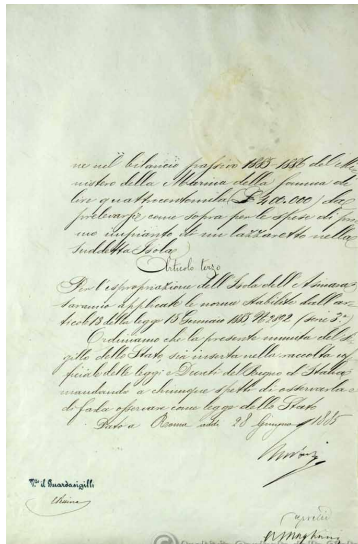 ne nel bilancio passivo 1885-1886 del Mi-
nistero della Marina della somma di
lire quattrocentomila (£ 400.000) da
prelevarsi come sopra per le spese di pri
mo impianto di un lazzaretto nella
suddetta Isola
Articolo terzo
Per l'espropriazione dell'Isola dell'Asinara
saranno applicate le norme stabilite dall'ar-
ticolo 13 della legge 15 Gennaio 1885 N. 2892 (serie 3ª)
Ordiniamo che la presente munita del Si
gillo dello Stato, sia inserta nella raccolta uf
ficiale delle leggi e Decreti del Regno d'Italia
mandando a chiunque spetti di osservarla e
di farla osservare come legge dello Stato
Dato a Roma addì 28 Giugno 1885
Vº: il Guardasigilli
Magliani